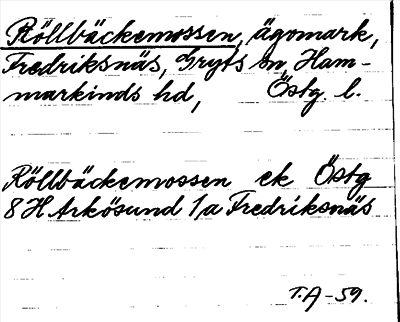 Röllbäckemossen, ägomark,
Fredriksnäs, Gryts sn, Ham-
markinds hd, Östg. l.
Röllbäckemossen ek Östg
8 H Arkösund 1,a Fredriksnäs
T.A-59.